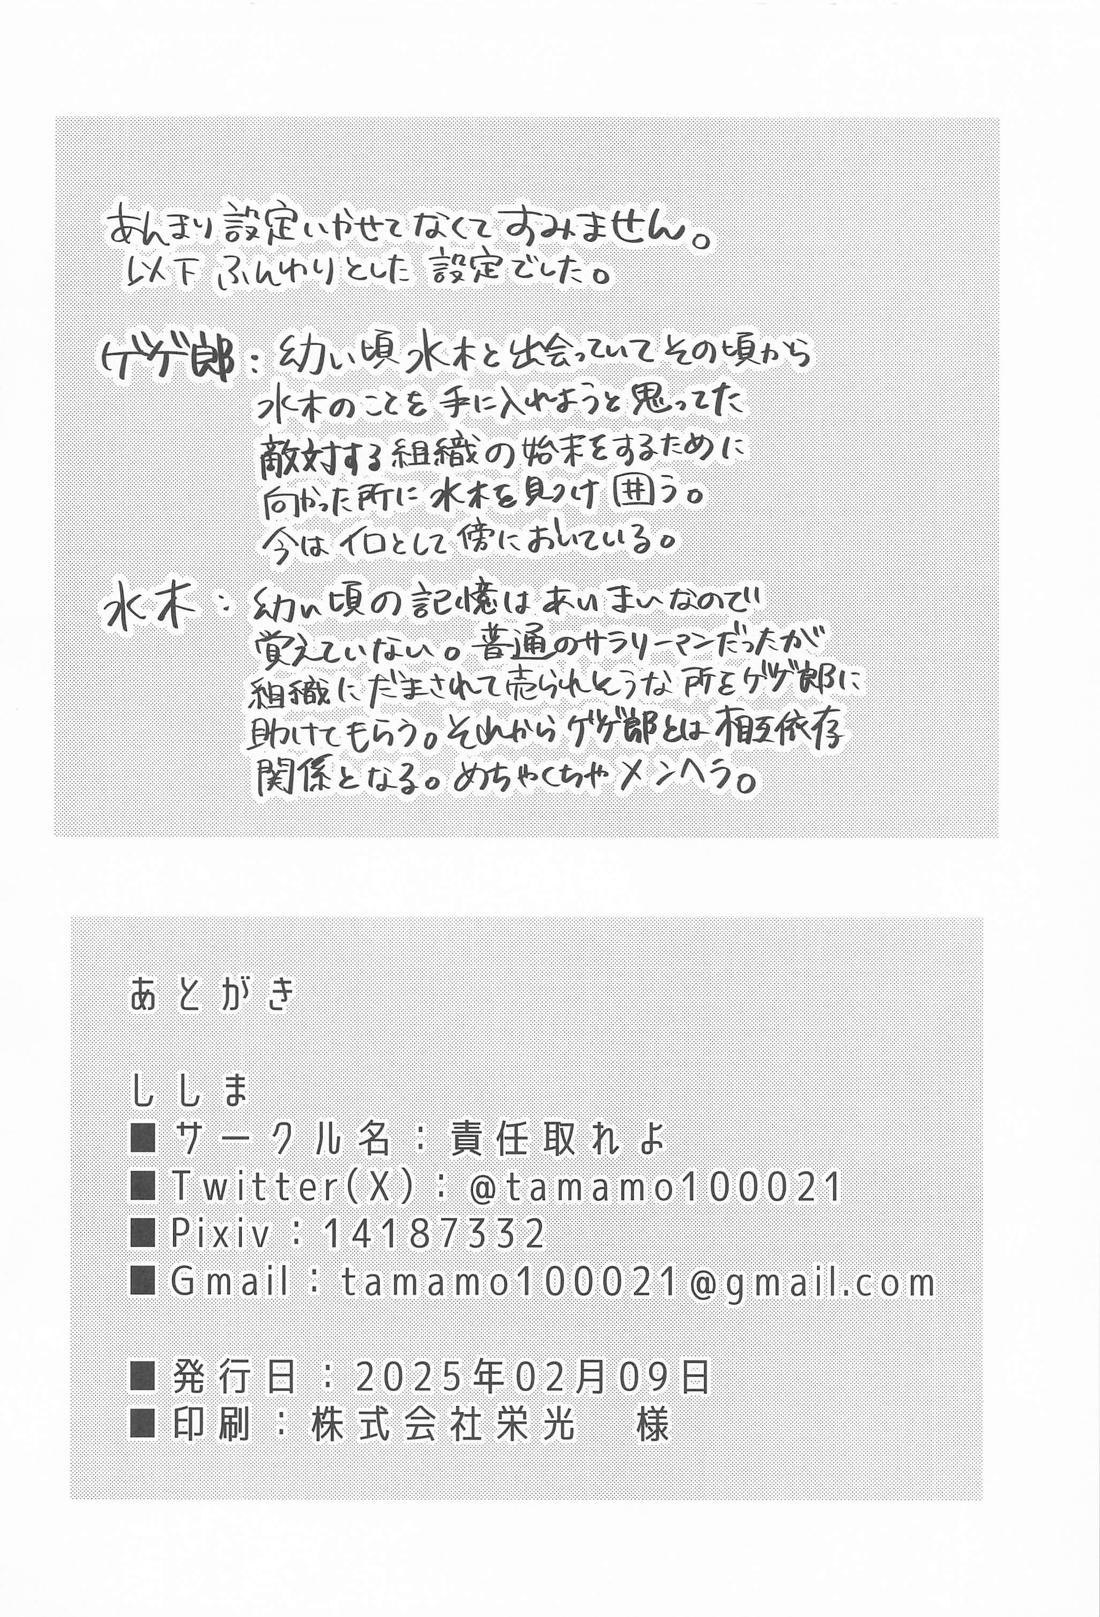 あんまり設定いかせてなくてすみません。
以下ふんわりとした設定でした。
ゲゲ郎：幼い頃水木と出会っていてその頃から
水木のことを手に入れようと思ってた
敵対する組織の始末をするために
向かった所に水木を見つけ囲う。
今はイロとして傍においている。
水木：幼い頃の記憶はあいまいなので
覚えていない。普通のサラリーマンだったが
組織にだまされて売られそうな所をゲゲ郎に
助けてもらう。それからゲゲ郎とは相互依存
関係となる。めちゃくちゃメンヘラ。
あとがき
ししま
■サークル名：責任取れよ
■Twitter(X)：@tamamo100021
■Pixiv：14187332
■Gmail：tamamo100021@gmail.com
■発行日：2025年02月09日
■印刷：株式会社栄光　様